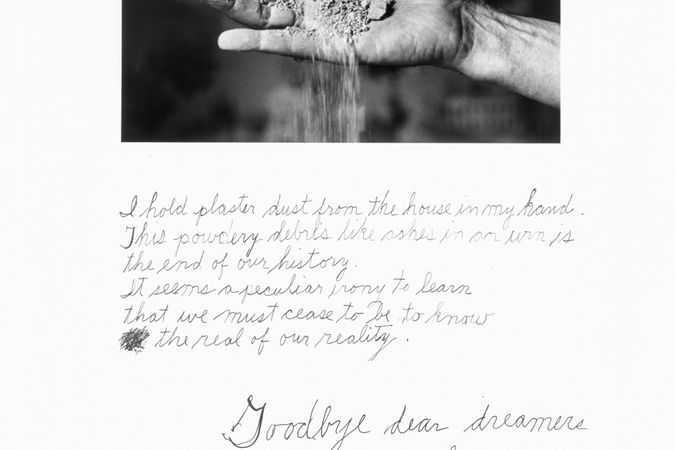 I hold plaster dust from the house in my hand.
This powdery debris like ashes in an urn is
the end of our history.
It seems a peculiar irony to learn
that we must cease to be to know
the real of our reality.
Goodbye dear dreamers